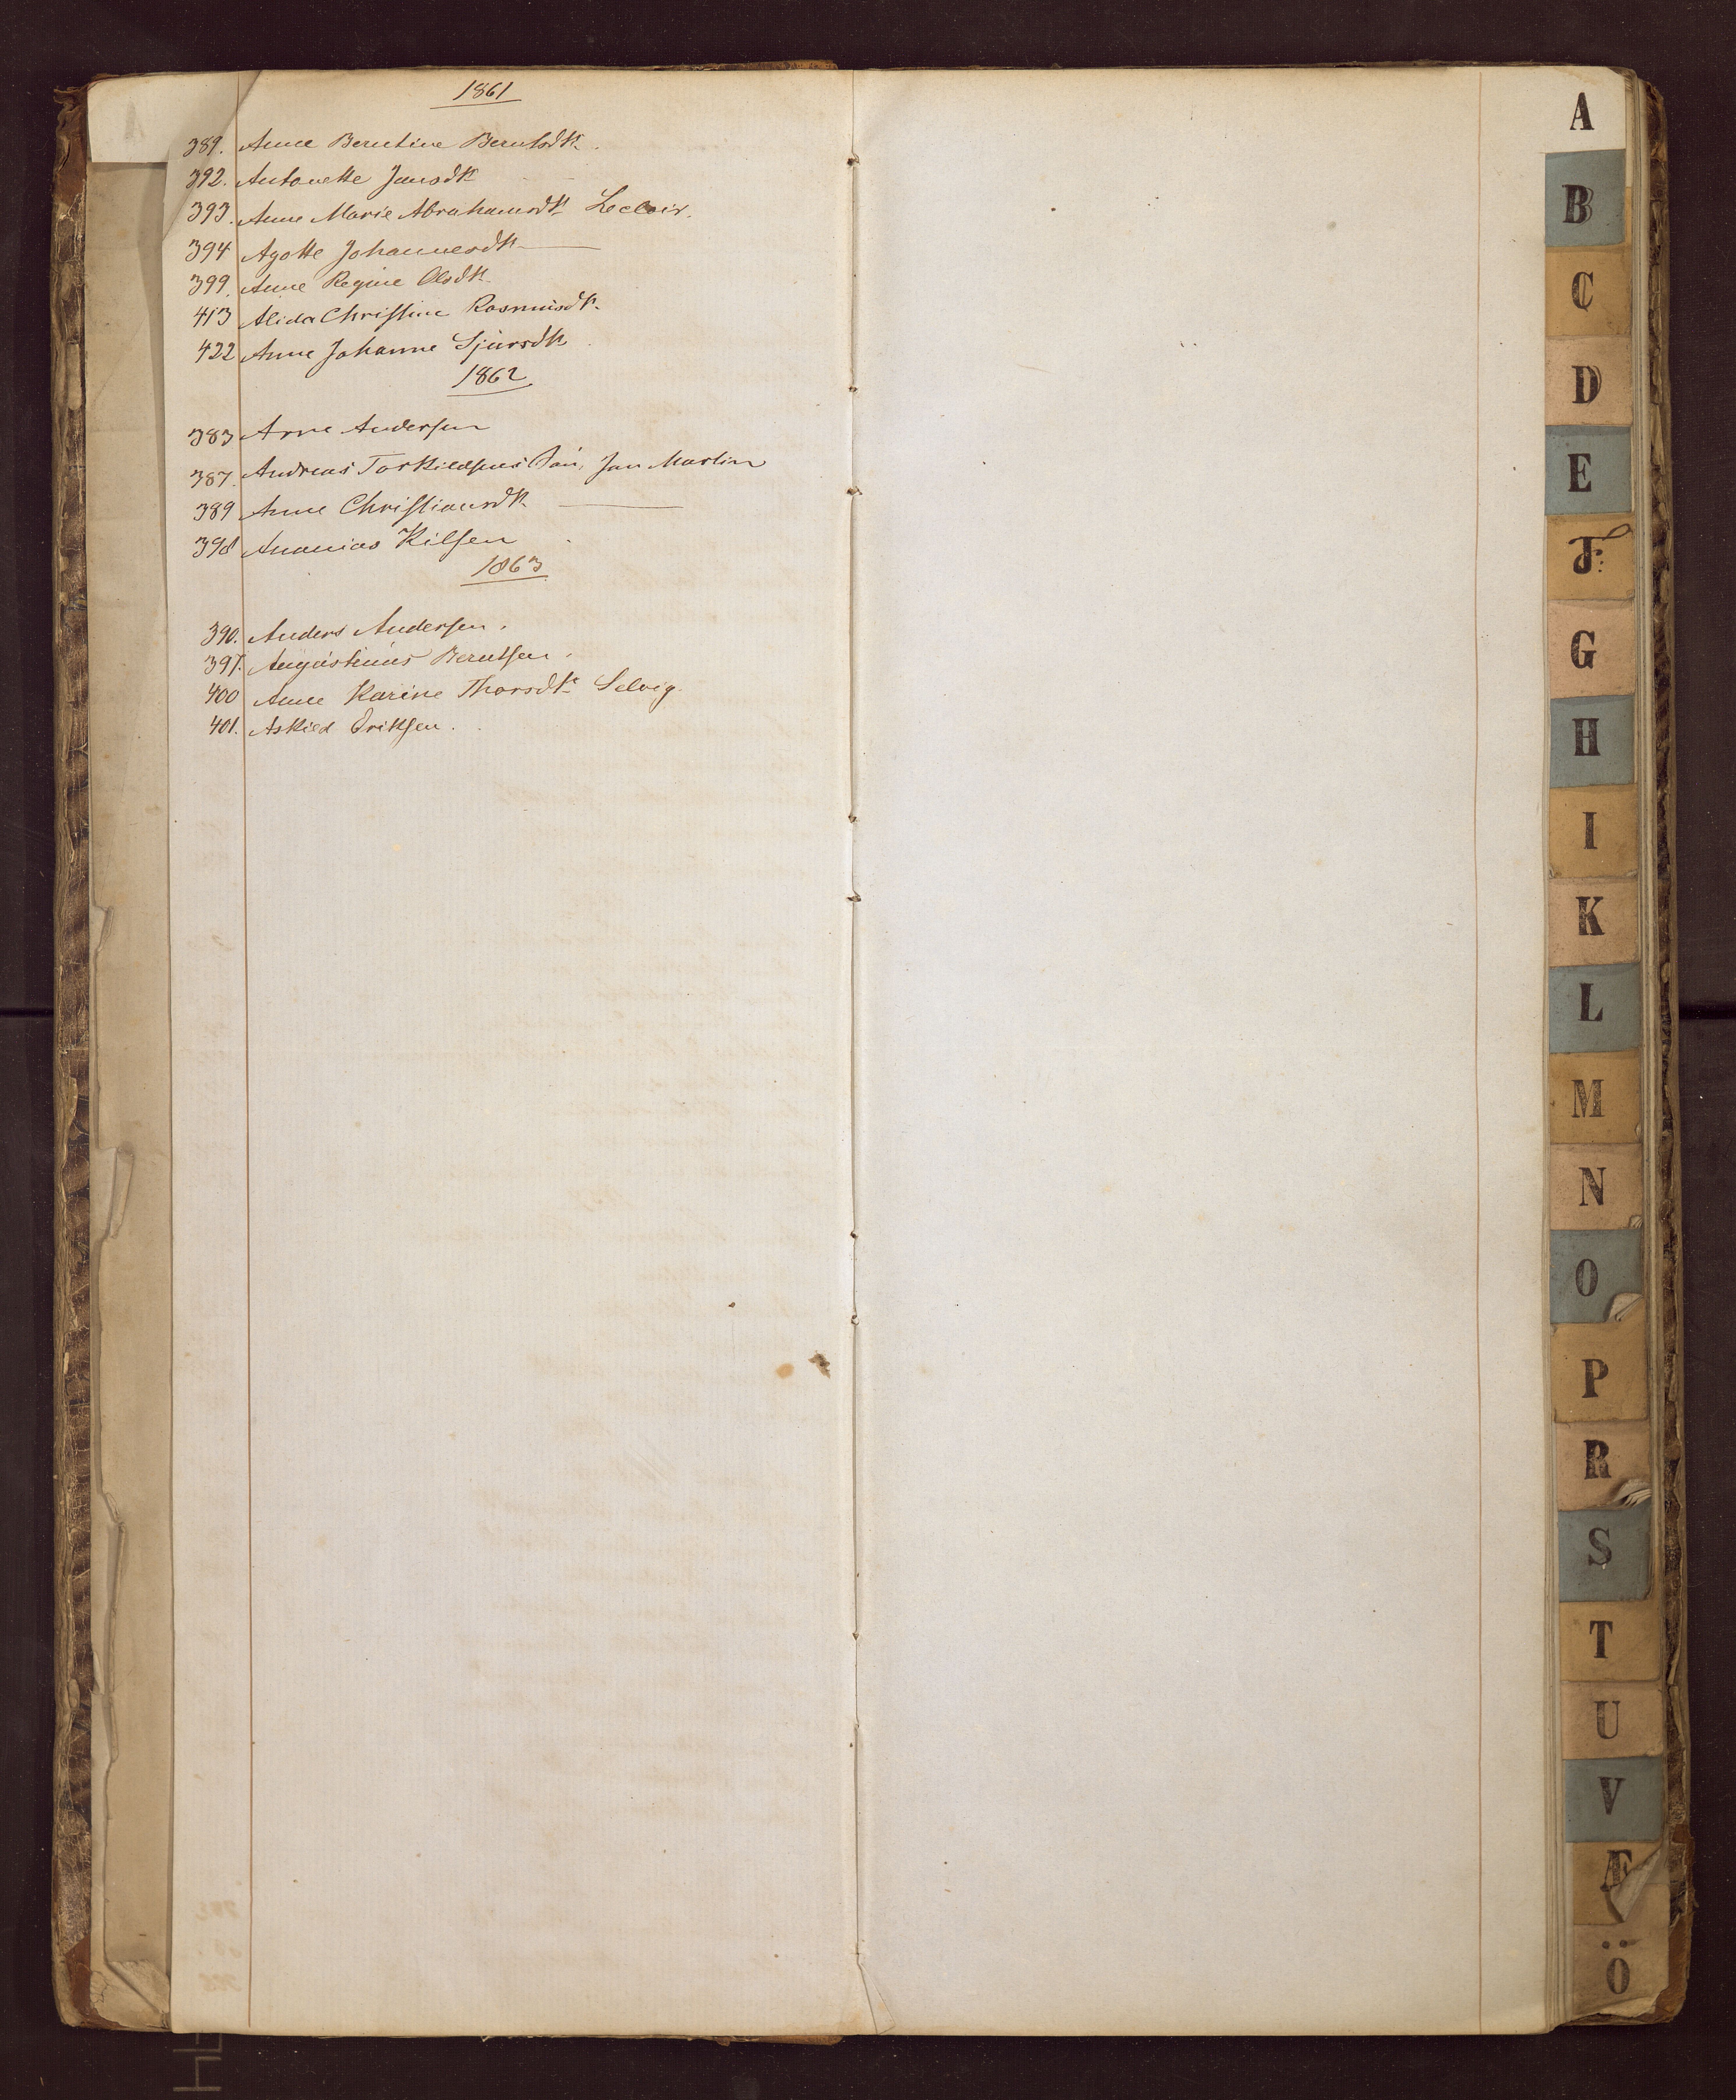 1861
389. Anne Berntine Berntsdtr.
392. Antonette Jansdtr
393. Anne Marie Abrahamsdtr Lecloir.
394 Agotte Johannesdtr
399. Anne Regine Olsdtr
413 Alida Christine Rasmusdtr.
422 Anne Johanne Sjursdtr
1862
383 Arne Andersen
387. Andreas Torkildsens Jan Martin
389 Anne Christiansdtr
398 Ananias Kilsen
1863
390. Anders Andersen.
397. Augustinus Berntsen.
400 Anne Karine Thorsdtr Selvig.
401. Askild Eriksen.
A
B
C
D
E
F
G
H
I
K
L
M
N
O
P
R
S
T
U
V
Æ
Ö